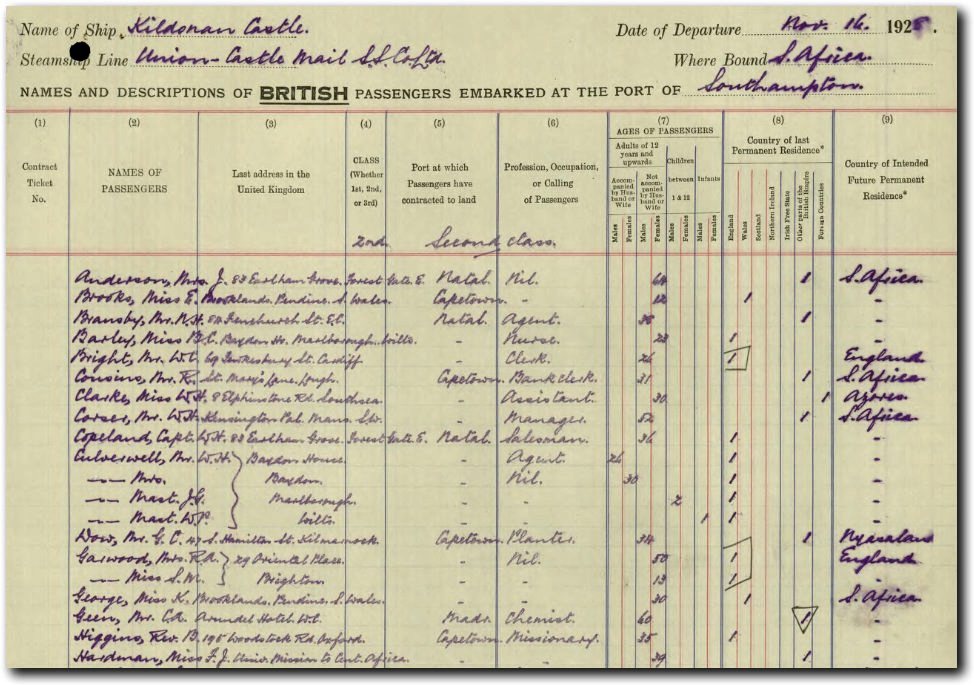 Name of Ship Kildonan Castle. Date of Departure Nov. 16. 1928.
Steamship Line Union-Castle Mail S.S. Co Ltd. Where Bound S. Africa.
NAMES AND DESCRIPTIONS OF BRITISH PASSENGERS EMBARKED AT THE PORT OF Southampton.
(1) (2) (3) (4) (5) (6) (7) (8) (9)
Contract Ticket No.
NAMES OF PASSENGERS
Last address in the United Kingdom
CLASS (Whether 1st, 2nd, or 3rd)
Port at which Passengers have contracted to land
Profession, Occupation, or Calling of Passengers
AGES OF PASSENGERS
Adults of 12 years and upwards
Accompanied by Husband or Wife
Not accompanied by Husband or Wife
Children between 1 & 12
Infants
Males Females Males Females Males Females Males Females
Country of last Permanent Residence*
England Wales Scotland Northern Ireland Irish Free State Other parts of the British Empire Foreign Countries
Country of Intended Future Permanent Residence*
2nd. Second class.
Anderson, Mrs. J. 83 Earlham Grove. Forest Gate. E. Natal. Nil. 64 1 S. Africa
Brooks, Miss E. Brooklands, Pendine. S. Wales. Capetown. - 1 -
Bransby, Mr. N.H. Fenchurch St. E.C. Natal. Agent. 38 1 -
Barley, Miss B.C. Baydon Ho. Marlborough. Wilts. - Nurse. 23 1 -
Bright, Mr. W.C. 69 Tewkesbury St. Cardiff - Clerk. 26 1 England
Cousins, Mr. R. St. Mary's Lane. Capetown. Bank Clerk. 31 1 S. Africa
Clarke, Miss W.H. 8 Elphinstone Rd. Southsea. - Assistant. 30 1 Azores
Corser, Mr. W.H. Kensington Pal. Mans. S.W. - Manager. 52 1 S. Africa
Copeland, Capt. W.H. 83 Earlham Grove. Forest Gate. E. Natal. Salesman. 36 1 -
Culverwell, Mr. W.H. Baydon House. - Agent. 26 1 -
-"- Mrs. Baydon. - Nil. 30 1 -
-"- Mast. J.G. Marlborough. - - 2 1 -
-"- Mast. W.P. Wilts. - - 1 1 -
Dow, Mr. G.C. 47 S. Hamilton St. Kilmarnock. Capetown. Planter. 34 1 Nyasaland
Garwood, Mrs. R.A. 29 Oriental Place. - Nil. 50 1 England
-"- Miss S.M. Brighton. - - 13 1 -
George, Miss K. Brooklands. Pendine. S. Wales. - - 30 1 S. Africa
Geen, Mr. C.A. Arundel Hotel. W.C. Madr. Chemist. 60 1 -
Higgins, Rev. B. 195 Woodstock Rd. Oxford. Capetown. Missionary. 35 1 -
Hardman, Miss F.J. Univ. Mission to Cent. Africa. - - 39 1 -